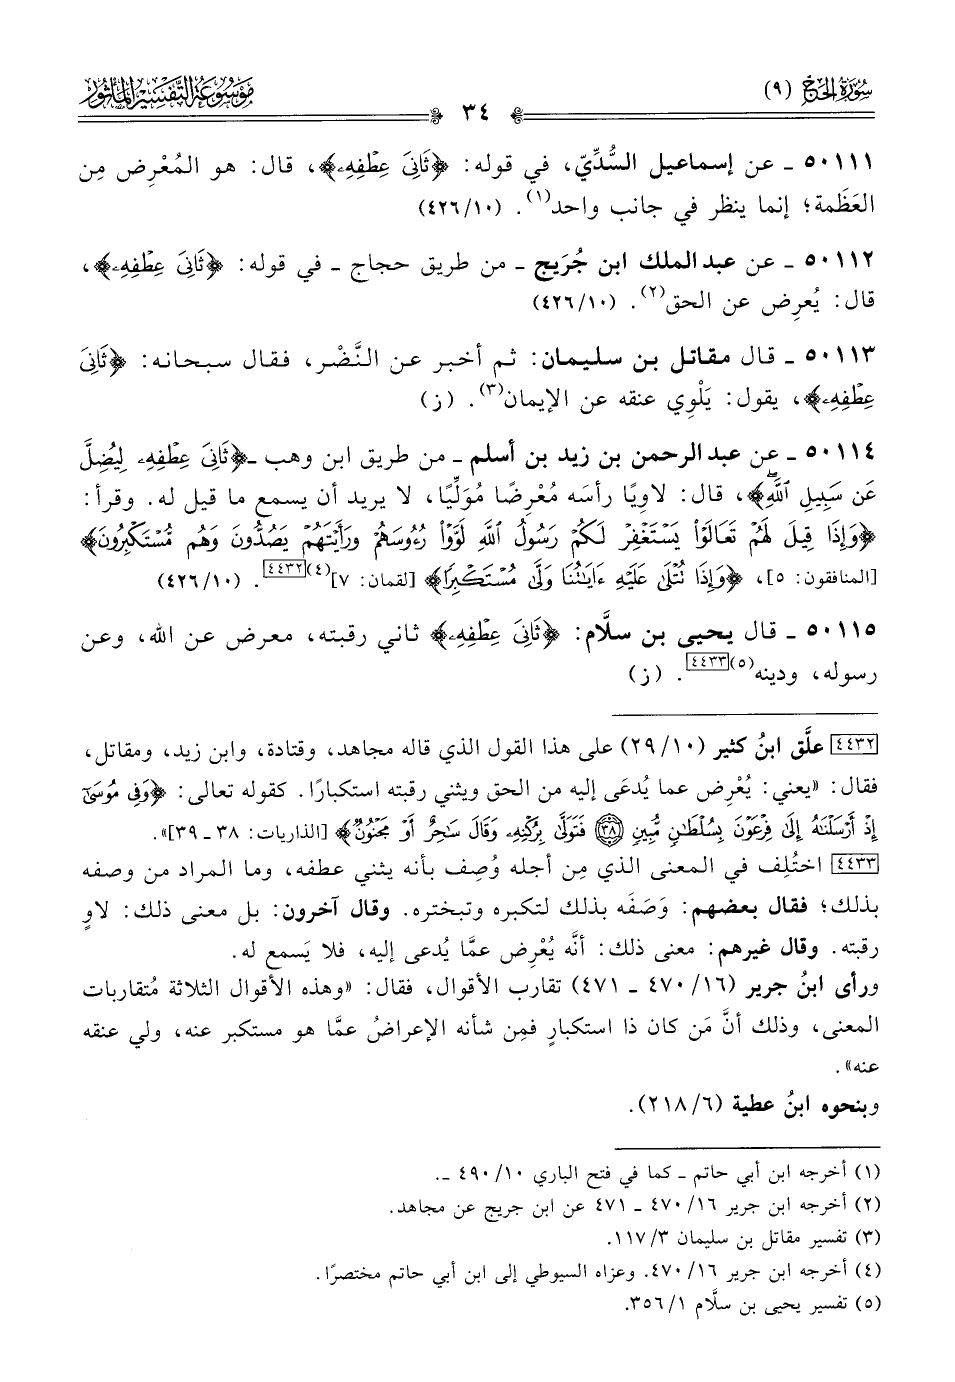 سُورَةُ الحَجِّ (٩)
٣٤
مَوْسُوعَةُ التَّفْسِيرِ المَأْثُورِ
٥٠١١١ ـ عن إسماعيل السُّدِّيّ، في قوله: ﴿ثَانِىَ عِطۡفِهِۦ﴾، قال: هو المُعْرِض مِن
العَظَمة؛ إنما ينظر في جانب واحد(١). (٤٢٦/١٠)
٥٠١١٢ ـ عن عبدالملك ابن جُرَيج ـ من طريق حجاج ـ في قوله: ﴿ثَانِىَ عِطۡفِهِۦ﴾،
قال: يُعرِض عن الحق(٢). (٤٢٦/١٠)
٥٠١١٣ ـ قال مقاتل بن سليمان: ثم أخبر عن النَّضْر، فقال سبحانه: ﴿ثَانِىَ
عِطۡفِهِۦ﴾، يقول: يَلْوِي عنقه عن الإيمان(٣). (ز)
٥٠١١٤ ـ عن عبدالرحمن بن زيد بن أسلم ـ من طريق ابن وهب ـ ﴿ثَانِىَ عِطۡفِهِۦ لِيُضِلَّ
عَن سَبِيلِ ٱللَّهِۖ﴾، قال: لاوِيًا رأسَه مُعْرِضًا مُوَلِّيًا، لا يريد أن يسمع ما قيل له. وقرأ:
﴿وَإِذَا قِيلَ لَهُمۡ تَعَالَوۡاْ يَسۡتَغۡفِرۡ لَكُمۡ رَسُولُ ٱللَّهِ لَوَّوۡاْ رُءُوسَهُمۡ وَرَأَيۡتَهُمۡ يَصُدُّونَ وَهُم مُّسۡتَكۡبِرُونَ﴾
[المنافقون: ٥]، ﴿وَإِذَا تُتۡلَىٰ عَلَيۡهِ ءَايَٰتُنَا وَلَّىٰ مُسۡتَكۡبِرًا﴾ [لقمان: ٧](٤)[٤٤٣٢]. (٤٢٦/١٠)
٥٠١١٥ ـ قال يحيى بن سلَّام: ﴿ثَانِىَ عِطۡفِهِۦ﴾ ثاني رقبته، معرض عن الله، وعن
رسوله، ودينه(٥)[٤٤٣٣]. (ز)
[٤٤٣٢] علَّق ابنُ كثير (٢٩/١٠) على هذا القول الذي قاله مجاهد، وقتادة، وابن زيد، ومقاتل،
فقال: «يعني: يُعْرِض عما يُدعَى إليه من الحق ويثني رقبته استكبارًا. كقوله تعالى: ﴿وَفِى مُوسَىٰٓ
إِذۡ أَرۡسَلۡنَٰهُ إِلَىٰ فِرۡعَوۡنَ بِسُلۡطَٰنٖ مُّبِينٖ ۝٣٨ فَتَوَلَّىٰ بِرُكۡنِهِۦ وَقَالَ سَٰحِرٌ أَوۡ مَجۡنُونٞ﴾ [الذاريات: ٣٨ ـ ٣٩]».
[٤٤٣٣] اختُلِف في المعنى الذي مِن أجله وُصِف بأنه يثني عطفه، وما المراد من وصفه
بذلك؛ فقال بعضهم: وَصَفَه بذلك لتكبره وتبختره. وقال آخرون: بل معنى ذلك: لاوٍ
رقبته. وقال غيرهم: معنى ذلك: أنَّه يُعْرِض عمَّا يُدعى إليه، فلا يَسمع له.
ورأى ابنُ جرير (٤٧٠/١٦ ـ ٤٧١) تقارب الأقوال، فقال: «وهذه الأقوال الثلاثة مُتقاربات
المعنى، وذلك أنَّ مَن كان ذا استكبارٍ فمِن شأنه الإعراضُ عمَّا هو مستكبر عنه، ولي عنقه
عنه».
وبنحوه ابنُ عطية (٢١٨/٦).
(١) أخرجه ابن أبي حاتم ـ كما في فتح الباري ٤٩٠/١٠ ـ.
(٢) أخرجه ابن جرير ٤٧٠/١٦ ـ ٤٧١ عن ابن جريج عن مجاهد.
(٣) تفسير مقاتل بن سليمان ١١٧/٣.
(٤) أخرجه ابن جرير ٤٧٠/١٦. وعزاه السيوطي إلى ابن أبي حاتم مختصرًا.
(٥) تفسير يحيى بن سلَّام ٣٥٦/١.